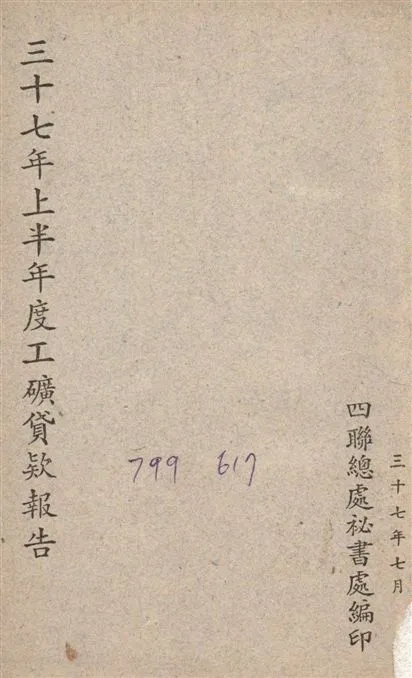 三十七年七月
四聯總處祕書處編印
799 617
三十七年上半年度工礦貸款報告